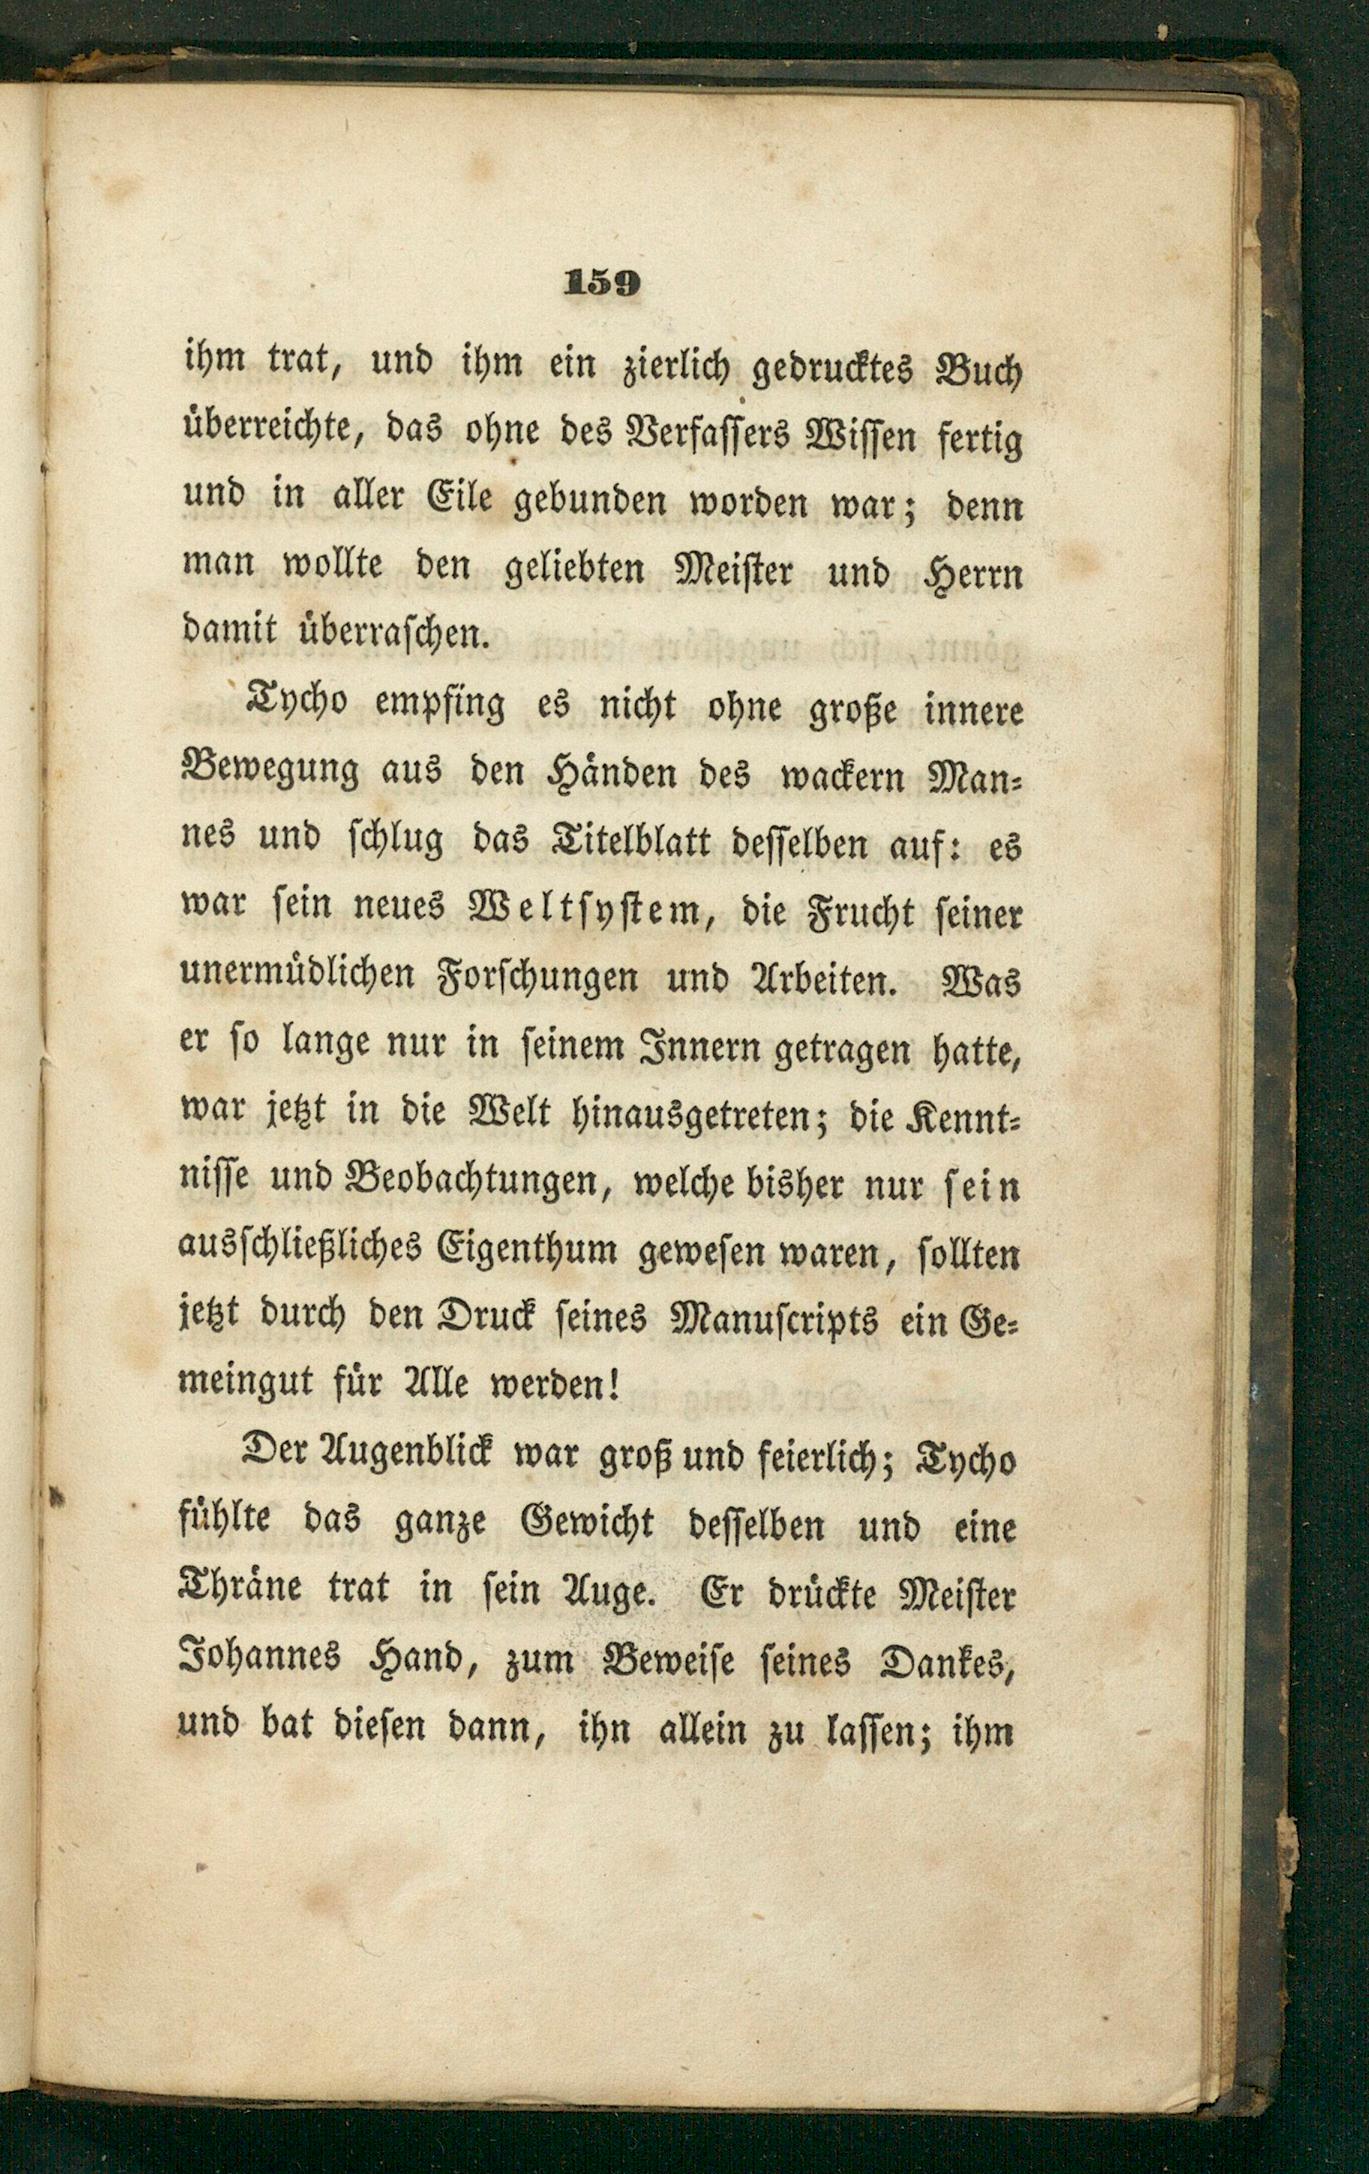 159
ihm trat, und ihm ein zierlich gedrucktes Buch
überreichte, das ohne des Verfassers Wissen fertig
und in aller Eile gebunden worden war; denn
man wollte den geliebten Meister und Herrn
damit überraschen.
Tycho empfing es nicht ohne große innere
Bewegung aus den Händen des wackern Man-
nes und schlug das Titelblatt desselben auf: es
war sein neues Weltsystem, die Frucht seiner
unermüdlichen Forschungen und Arbeiten. Was
er so lange nur in seinem Innern getragen hatte,
war jetzt in die Welt hinausgetreten; die Kennt-
nisse und Beobachtungen, welche bisher nur sein
ausschließliches Eigenthum gewesen waren, sollten
jetzt durch den Druck seines Manuscripts ein Ge-
meingut für Alle werden!
Der Augenblick war groß und feierlich; Tycho
fühlte das ganze Gewicht desselben und eine
Thräne trat in sein Auge. Er drückte Meister
Johannes Hand, zum Beweise seines Dankes,
und bat diesen dann, ihn allein zu lassen; ihm